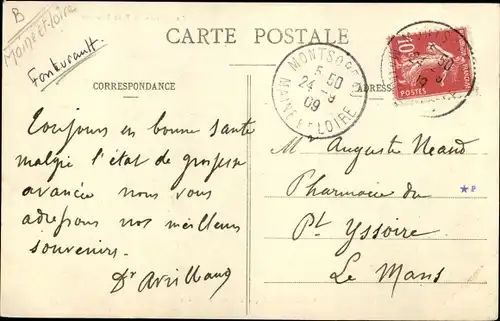 B
Maine-et-Loire
Fontevrault.
CARTE POSTALE
CORRESPONDANCE
ADRESSE
MONTSOREAU
5 50
24 - 9
09
MAINE ET LOIRE
10
POSTES
Toujours en bonne santé
malgré l'état de grossesse
avancée nous vous
adressons nos meilleurs
souvenirs.
Dr
M Auguste
Pharmacie du
Pt Yssoire
Le Mans